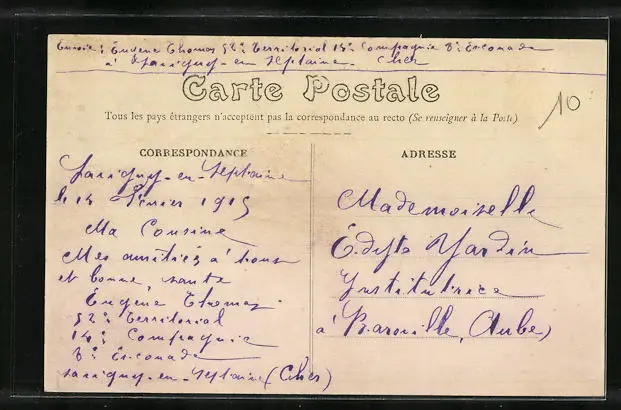 Envoie: Eugène Thomas 52e Territorial 14e Compagnie 8e Escouade
à Savigny-en-Septaine. Cher
Carte Postale
10
Tous les pays étrangers n'acceptent pas la correspondance au recto (Se renseigner à la Poste)
CORRESPONDANCE
Savigny-en-Septaine
le 14 Février 1915
Ma Cousine
Mes amitiés à vous
et bonne santé
Eugène Thomas
52e Territorial
14e Compagnie
8e Escouade
Savigny-en-Septaine (Cher)
ADRESSE
Mademoiselle
Institutrice
à Baroville, (Aube)